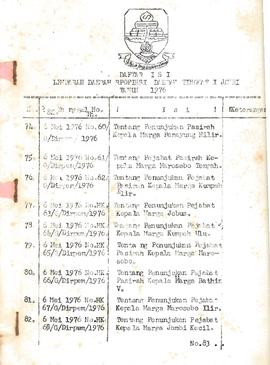 DAFTAR ISI
LEMBARAN DAERAH PROPINSI DAERAH TINGKAT I JAMBI
TAHUN 1976
No. I s i Keterangan
74. 6 Mei 1976 No.60/ Tentang Penunjukan Pasirah
G/Dirpem/ 1976 Kepala Marga Perayung Hilir.
75. 6 Mei 1976 No.61/ Tentang Pejabat Pasirah Ke-
G/Dirpem/1976 pala Marga Marosebo Tengah.
76. 6 Mei 1976 No.62/ Tentang Penunjukan Pejabat
G/Dirpem/1976 Pasirah Kepala Marga Kumpeh
Ilir.
77. 6 Mei 1976 No.HK Tentang Penunjukan Pejabat
63/G/Dirpem/1976 Kepala Marga Jebus.
78 6 Mei 1976 No.HK Tentang Penunjukan Pejabat
64/G/Dirpem/1976 Kepala Marga Kumpeh Ulu.
79. 6 Mei 1976 No.HK Tentang Penunjukan Pejabat
65/G/Dirpem/1976 Pasirah Kepala Marga Maro-
sobo.
80. 6 Mei 1976 No.HK Tentang Penunjukan Pejabat
66/G/Dirpem/1976 Pasirah Kepala Marga Bathin
V.
81. 6 Mei 1976 No.HK Tentang Penunjukan Pejabat
67/G/Dirpem/1976 Kepala Marga Marosebo Ilir.
82. 6 Mei 1976 No.HK Tentang Penunjukan Pejabat
68/G/Dirpem/1976 Kepala Marga Jambi Kecil.
No.83 .